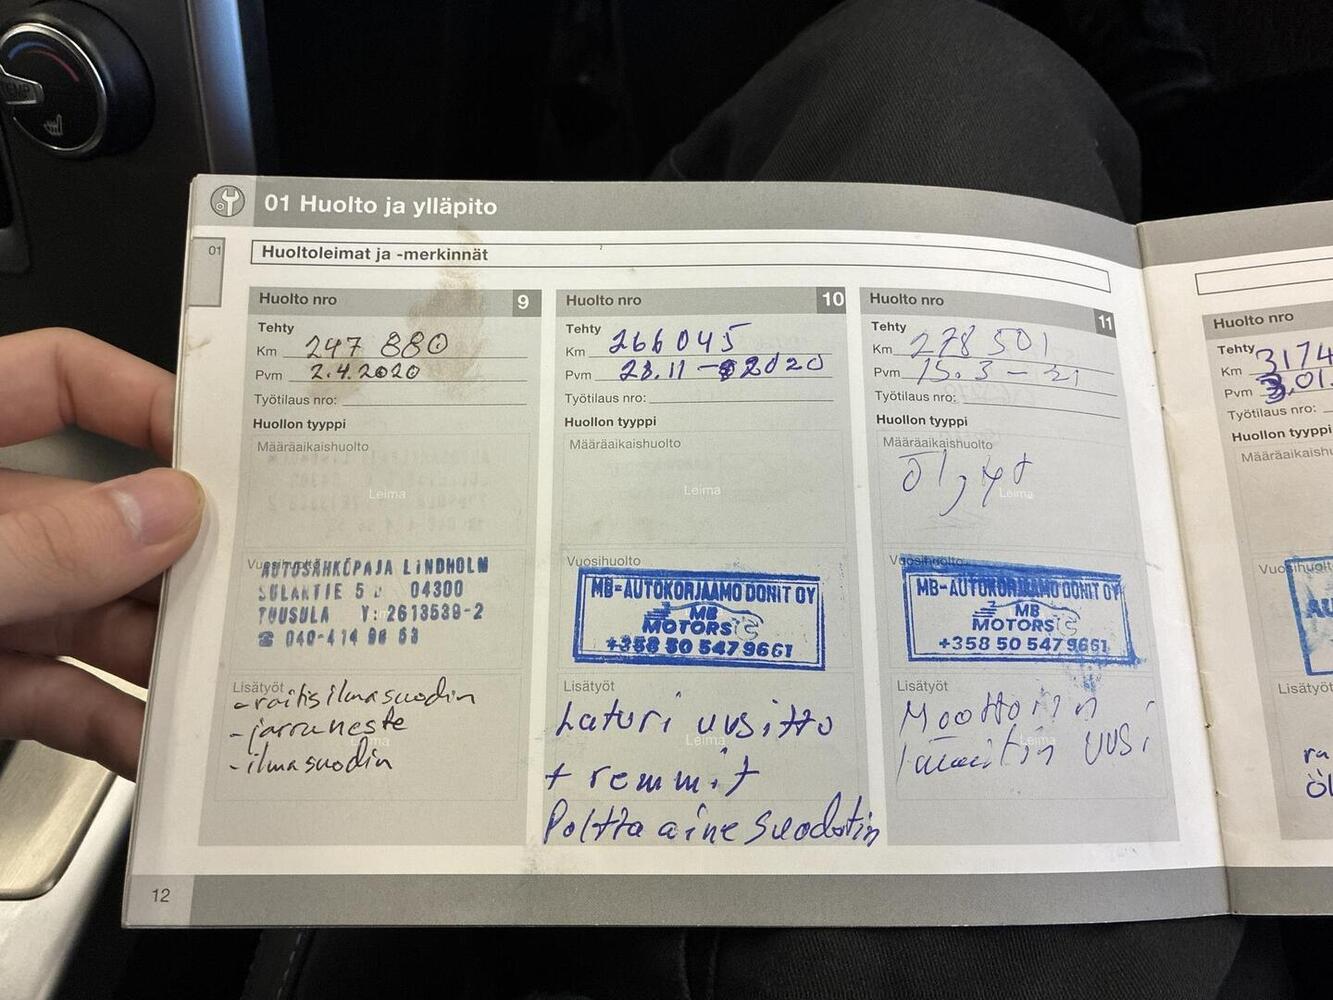 TEMP
01 Huolto ja ylläpito
01
Huoltoleimat ja -merkinnät
Huolto nro 9
Tehty
Km 247 880
Pvm 2.4.2020
Työtilaus nro:
Huollon tyyppi
Määräaikaishuolto
Leima
Vuosihuolto
AUTOSÄHKÖPAJA LINDHOLM
SULANTIE 5 04300
TUUSULA Y: 2613539-2
☎ 040-414 96 63
Lisätyöt
-raitisilmasuodin
-jarruneste
-ilmasuodin
Leima
Huolto nro 10
Tehty
Km 266045
Pvm 23.11-2020
Työtilaus nro:
Huollon tyyppi
Määräaikaishuolto
Leima
Vuosihuolto
MB-AUTOKORJAAMO DONIT OY
MB
MOTORS
+358 50 547 9661
Lisätyöt
Laturi uusittu
Leima
+ remmit
Polttoaine suodatin
Huolto nro 11
Tehty
Km 278 501
Pvm 15.3-21
Työtilaus nro:
Huollon tyyppi
Määräaikaishuolto
öljyt
Leima
Vuosihuolto
MB-AUTOKORJAAMO DONIT OY
MB
MOTORS
+358 50 547 9661
Lisätyöt
Moottorin
lämmitin uusi
Leima
12
Huolto nro
Tehty
Km 3174
Pvm 3.01.
Työtilaus nro:
Huollon tyyppi
Määräaikaishu
Vuosihuolto
AU
Lisätyöt
ra
öl